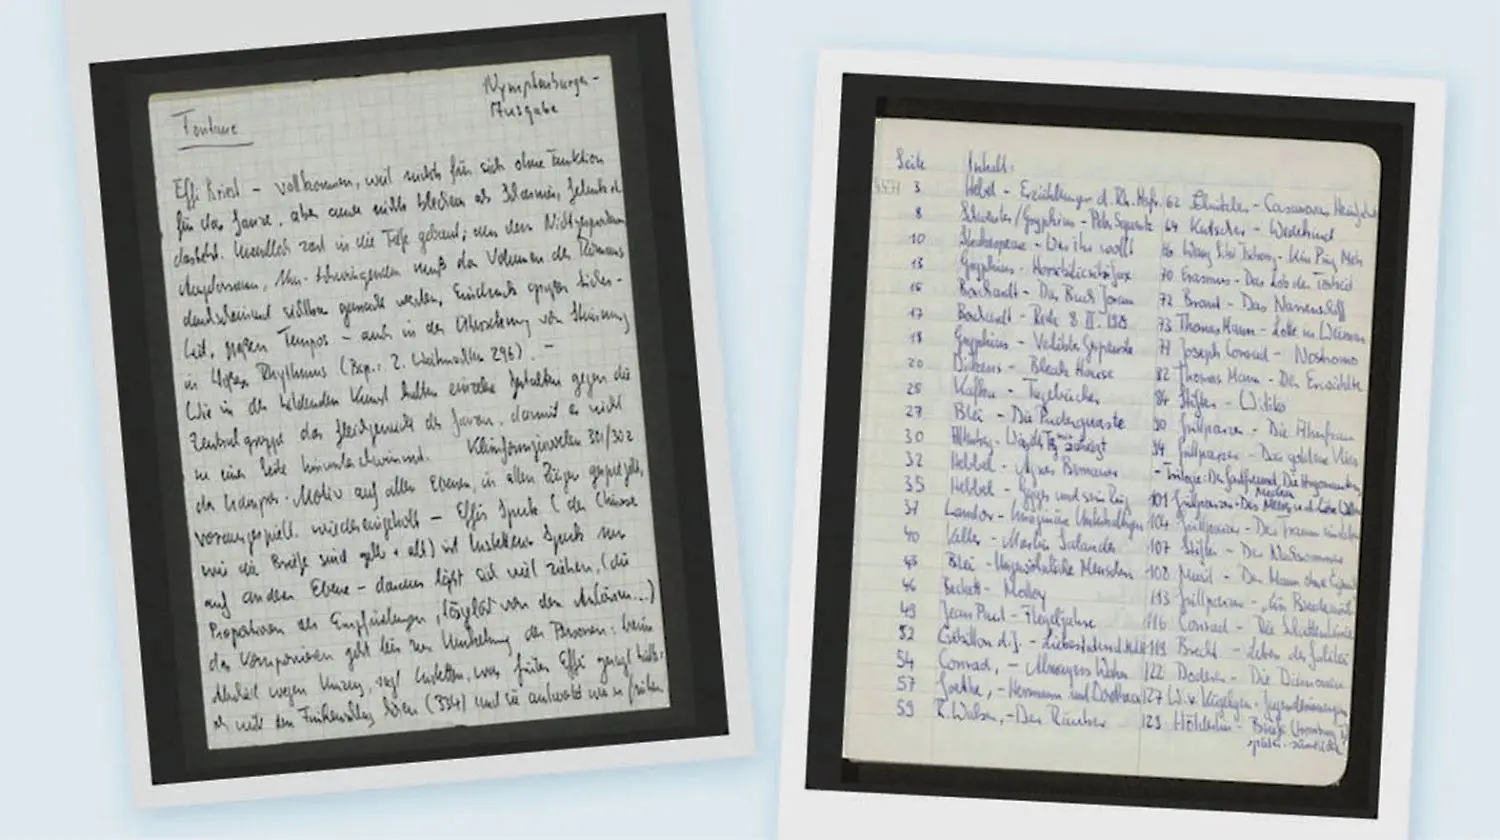 Nymphenburger-
Ausgabe
Fontane
Effi Briest – vollkommen, weil nichts für sich ohne Funktion
für das Ganze, aber auch nichts blechern als Scharnier, Gelenk
dasteht. Unendlich zart in die Tiefe gebaut; um dem
muß das Volumen des Romans
werden, Eindruck großer
keit, großen Tempos – auch in der Übersetzung von Stimmung
in Rhythmus (Bsp.: 2. Weihnachten 296). –
Wie in der bildenden Kunst halten einzelne Gestalten gegen die
Zentralgruppe das Gleichgewicht des Ganzen, damit es nicht
zu einer Seite hinunterschwimmt. 301/302
das Motiv auf allen Ebenen, in allen gespiegelt,
vorausgespielt, wiedereingeholt – Effis Spuk (der Chinese
wie die Briefe sind gelb + alt) ist Innstettens Spuk nur
auf anderer Ebene – daraus läßt sich viel ziehen, (die
Proportionen der Empfindungen, losgelöst von den Anlässen...)
das Komponieren geht bis zur Umkehrung der Personen: beim
Abschied wegen Umzug, sagt Innstetten, was früher Effi gesagt hätte:
(334) und sie antwortet wie er früher
Seite Inhalt:
3 Hebel – Erzählungen d. Rh. Hsfr.
8 Schwenter/Gryphius – Peter Squentz
10 Shakespeare – Was ihr wollt
13 Gryphius – Horribilicribrifax
15 Borchardt – Das Buch Joram
17 Borchardt – Rede
18 Gryphius – Verliebte Gespenste
20 Dickens – Bleak House
25 Kafka – Tagebücher
27 Blei – Die Puderquaste
30 Altenberg – Was der Tag mir zuträgt
32 Hebbel – Agnes Bernauer
35 Hebbel – Gyges und sein Ring
37 Landor – Imaginäre Unterhaltungen
40 Keller – Martin Salander
43 Blei – Ungewöhnliche Menschen
46 Beckett – Molloy
49 Jean Paul – Flegeljahre
52 Crébillon d. J. –
54 Conrad, – Almayers Wahn
57 Goethe, – Hermann und Dorothea
59 R. Walser, – Der Räuber
62 Schnitzler – Casanovas Heimfahrt
64 Kutscher – Wedekind
66 Wang Schi Tscheng – Kin Ping Meh
70 Erasmus – Das Lob der Torheit
72 Brant – Das Narrenschiff
73 Thomas Mann – Lotte in Weimar
77 Joseph Conrad – Nostromo
82 Thomas Mann – Der Erwählte
84 Stifter – Witiko
90 Grillparzer – Die Ahnfrau
94 Grillparzer – Das goldene Vlies
– Trilogie: Der Gastfreund, Die Argonauten,
Medea
101 Grillparzer – Des Meeres und der Liebe Wellen
104 Grillparzer – Der Traum ein Leben
107 Stifter – Der Nachsommer
108 Musil – Der Mann ohne Eigensch
113 Grillparzer – Ein Bruderzwist
116 Conrad – Die Schattenlinie
119 Brecht – Leben des Galilei
122 Doderer – Die Dämonen
127 W. v. Kügelgen – Jugenderinnerungen
129 Hölderlin – Briefe